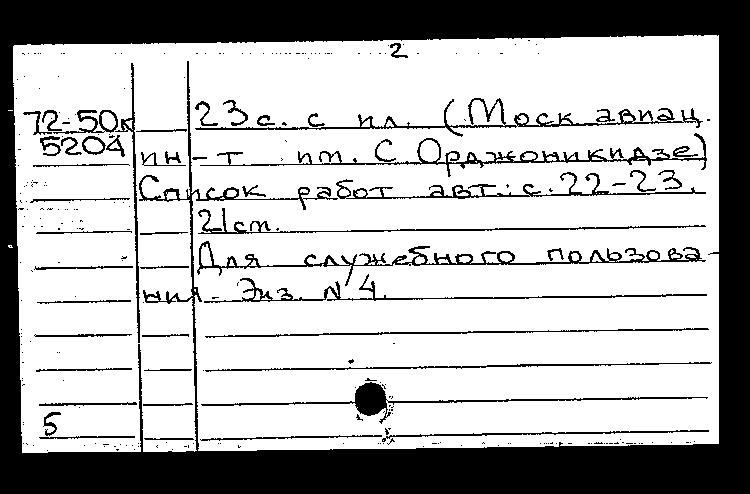 2
72-50к 23 с. с ил. (Моск авиац.
5204 ин-т им. С Орджоникидзе)
Список работ авт.: с. 22-23.
21 см.
Для служебного пользова-
ния. Экз. N 4.
5